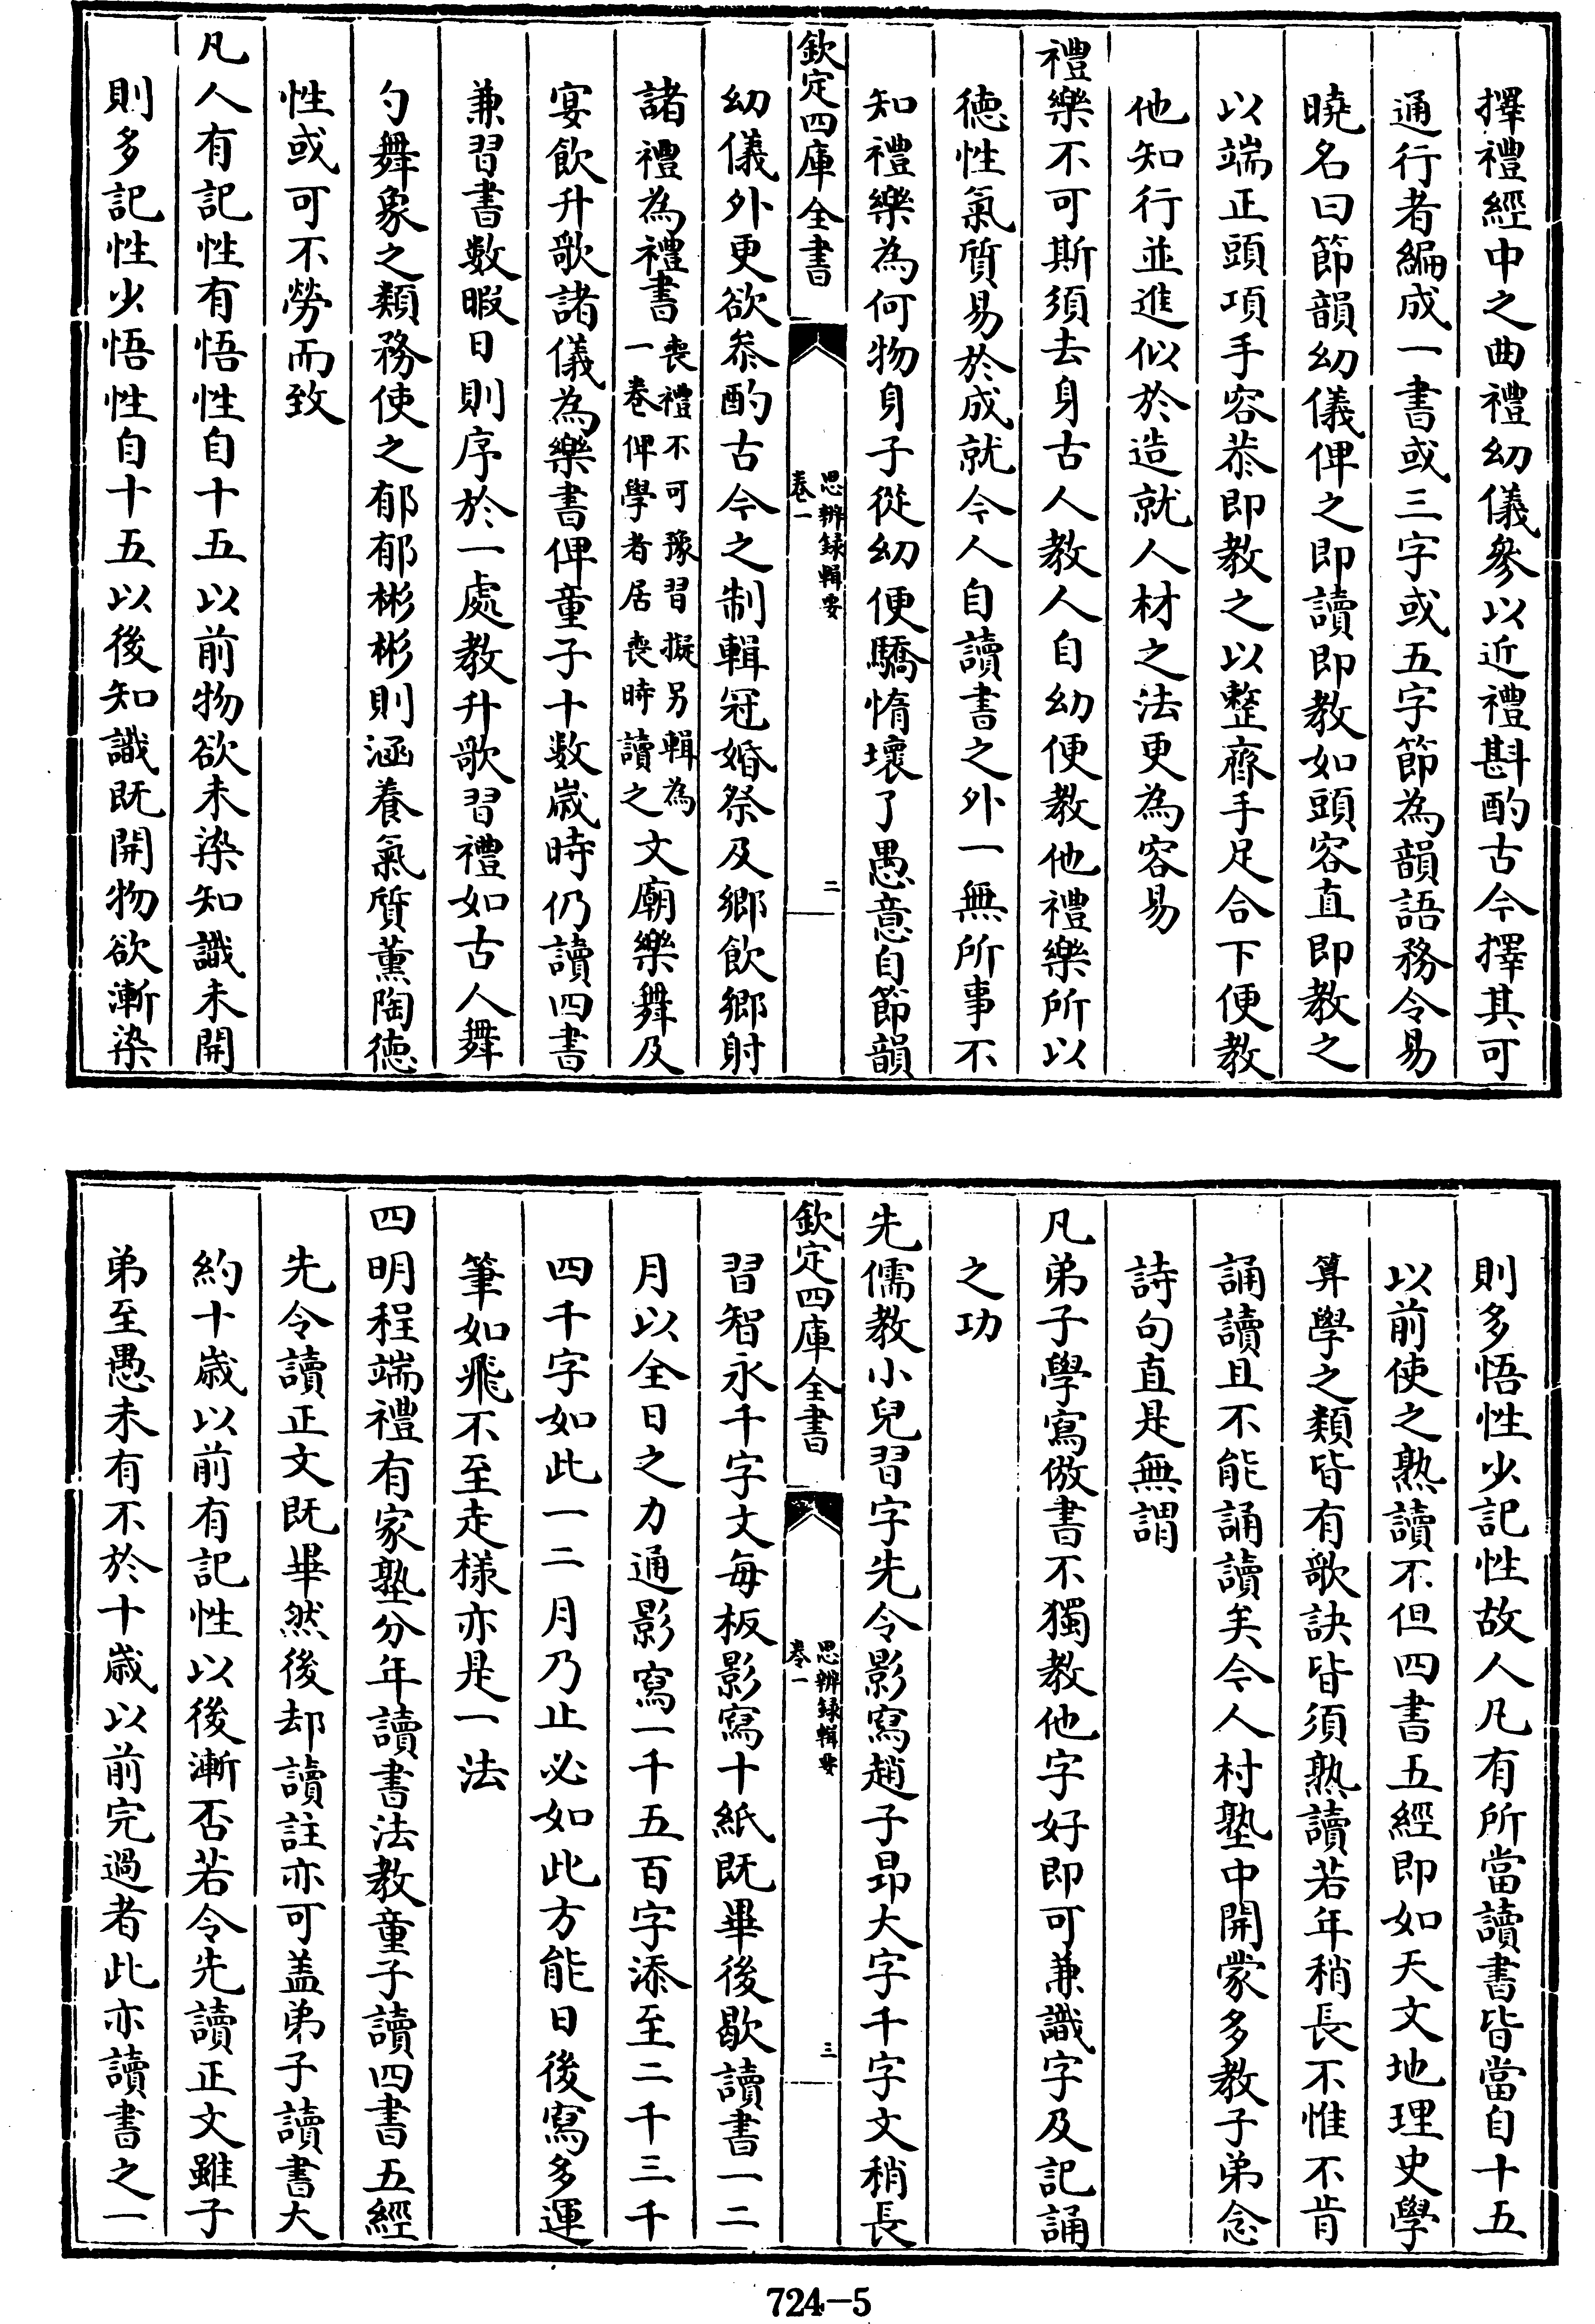 擇禮經中之曲禮幼儀參以近禮斟酌古今擇其可
通行者編成一書或三字或五字節為韻語務令易
曉名曰節韻幼儀俾之即讀即教如頭容直即教之
以端正頭項手容恭即教之以整齊手足合下便教
他知行並進似於造就人材之法更為容易
禮樂不可斯須去身古人教人自幼便教他禮樂所以
德性氣質易於成就今人自讀書之外一無所事不
知禮樂為何物身子從幼便驕惰壞了愚意自節韻
欽定四庫全書
思辨録輯要
卷一
二
幼儀外更欲叅酌古今之制輯冠婚祭及鄉飲鄉射
諸禮為禮書
喪禮不可豫習擬另輯為
一卷俾學者居喪時讀之
文廟樂舞及
宴飲升歌諸儀為樂書俾童子十數歲時仍讀四書
兼習書數暇日則序於一處教升歌習禮如古人舞
勺舞象之類務使之郁郁彬彬則涵養氣質薰陶德
性或可不勞而致
凡人有記性有悟性自十五以前物欲未染知識未開
則多記性少悟性自十五以後知識既開物欲漸染
則多悟性少記性故人凡有所當讀書皆當自十五
以前使之熟讀不但四書五經即如天文地理史學
算學之類皆有歌訣皆須熟讀若年稍長不惟不肯
誦讀且不能誦讀矣今人村塾中開蒙多教子弟念
詩句直是無謂
凡弟子學寫倣書不獨教他字好即可兼識字及記誦
之功
先儒教小兒習字先令影寫趙子昂大字千字文稍長
欽定四庫全書
思辨録輯要
卷一
三
習智永千字文每板影寫十紙既畢後歇讀書一二
月以全日之力通影寫一千五百字添至二千三千
四千字如此一二月乃止必如此方能日後寫多運
筆如飛不至走樣亦是一法
四明程端禮有家塾分年讀書法教童子讀四書五經
先令讀正文既畢然後却讀註亦可盖弟子讀書大
約十歲以前有記性以後漸否若令先讀正文雖子
弟至愚未有不於十歲以前完過者此亦讀書之一
724-5